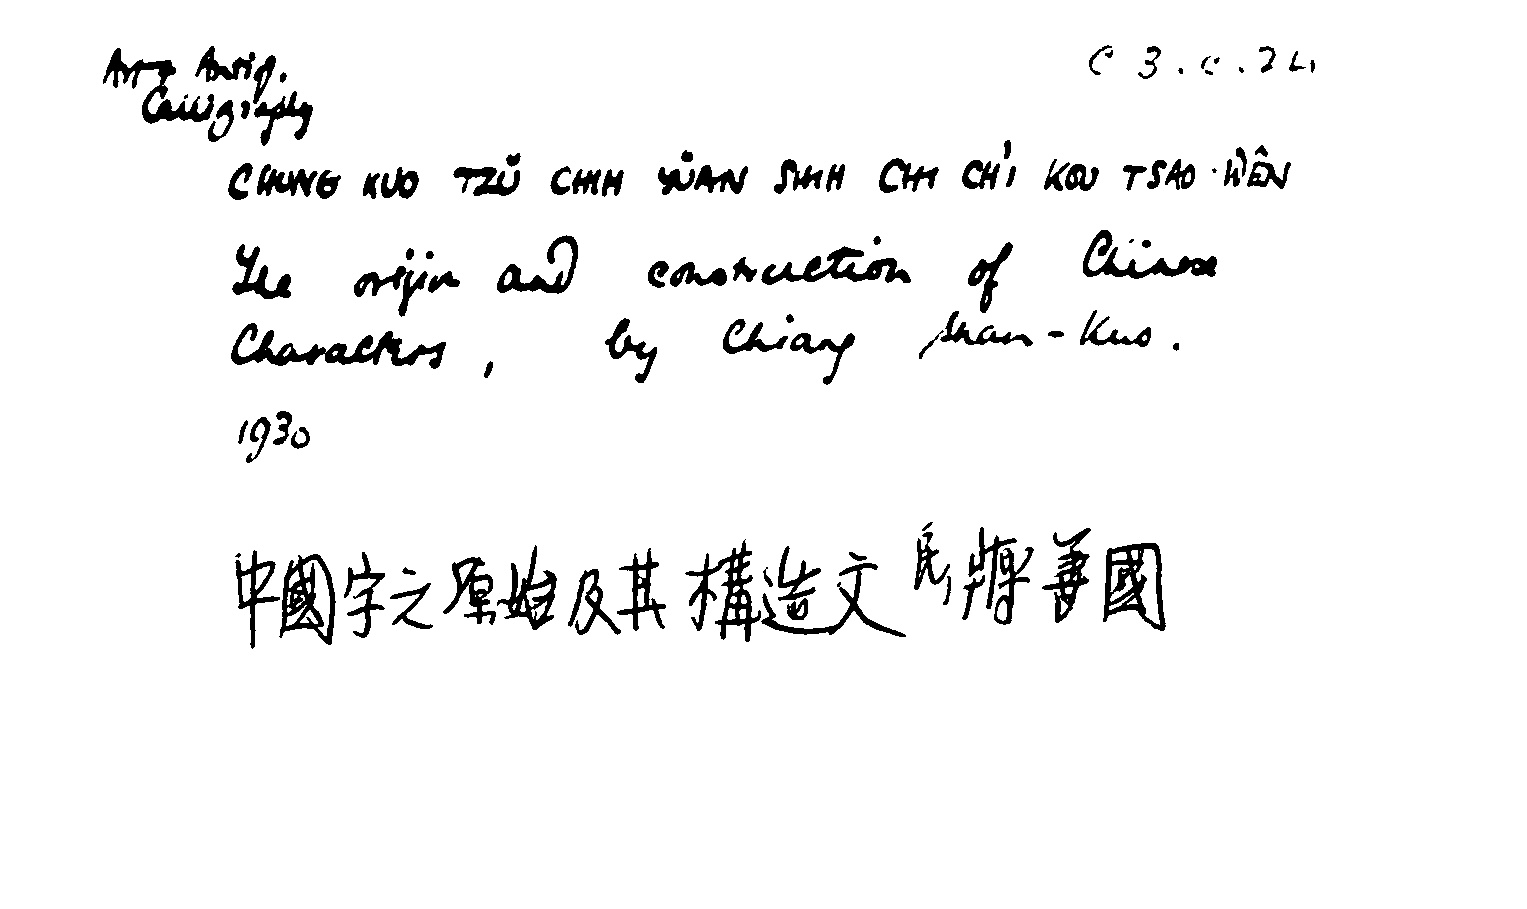 Art & Antiq. C 3. c. 24
Calligraphy
CHUNG KUO TZŬ CHIH YÜAN SHIH CHI CH'I KOU TSAO WÊN
The origin and construction of Chinese
Characters, by Chiang Shan-Kuo.
1930
中國字之原始及其構造文 民 蔣善國